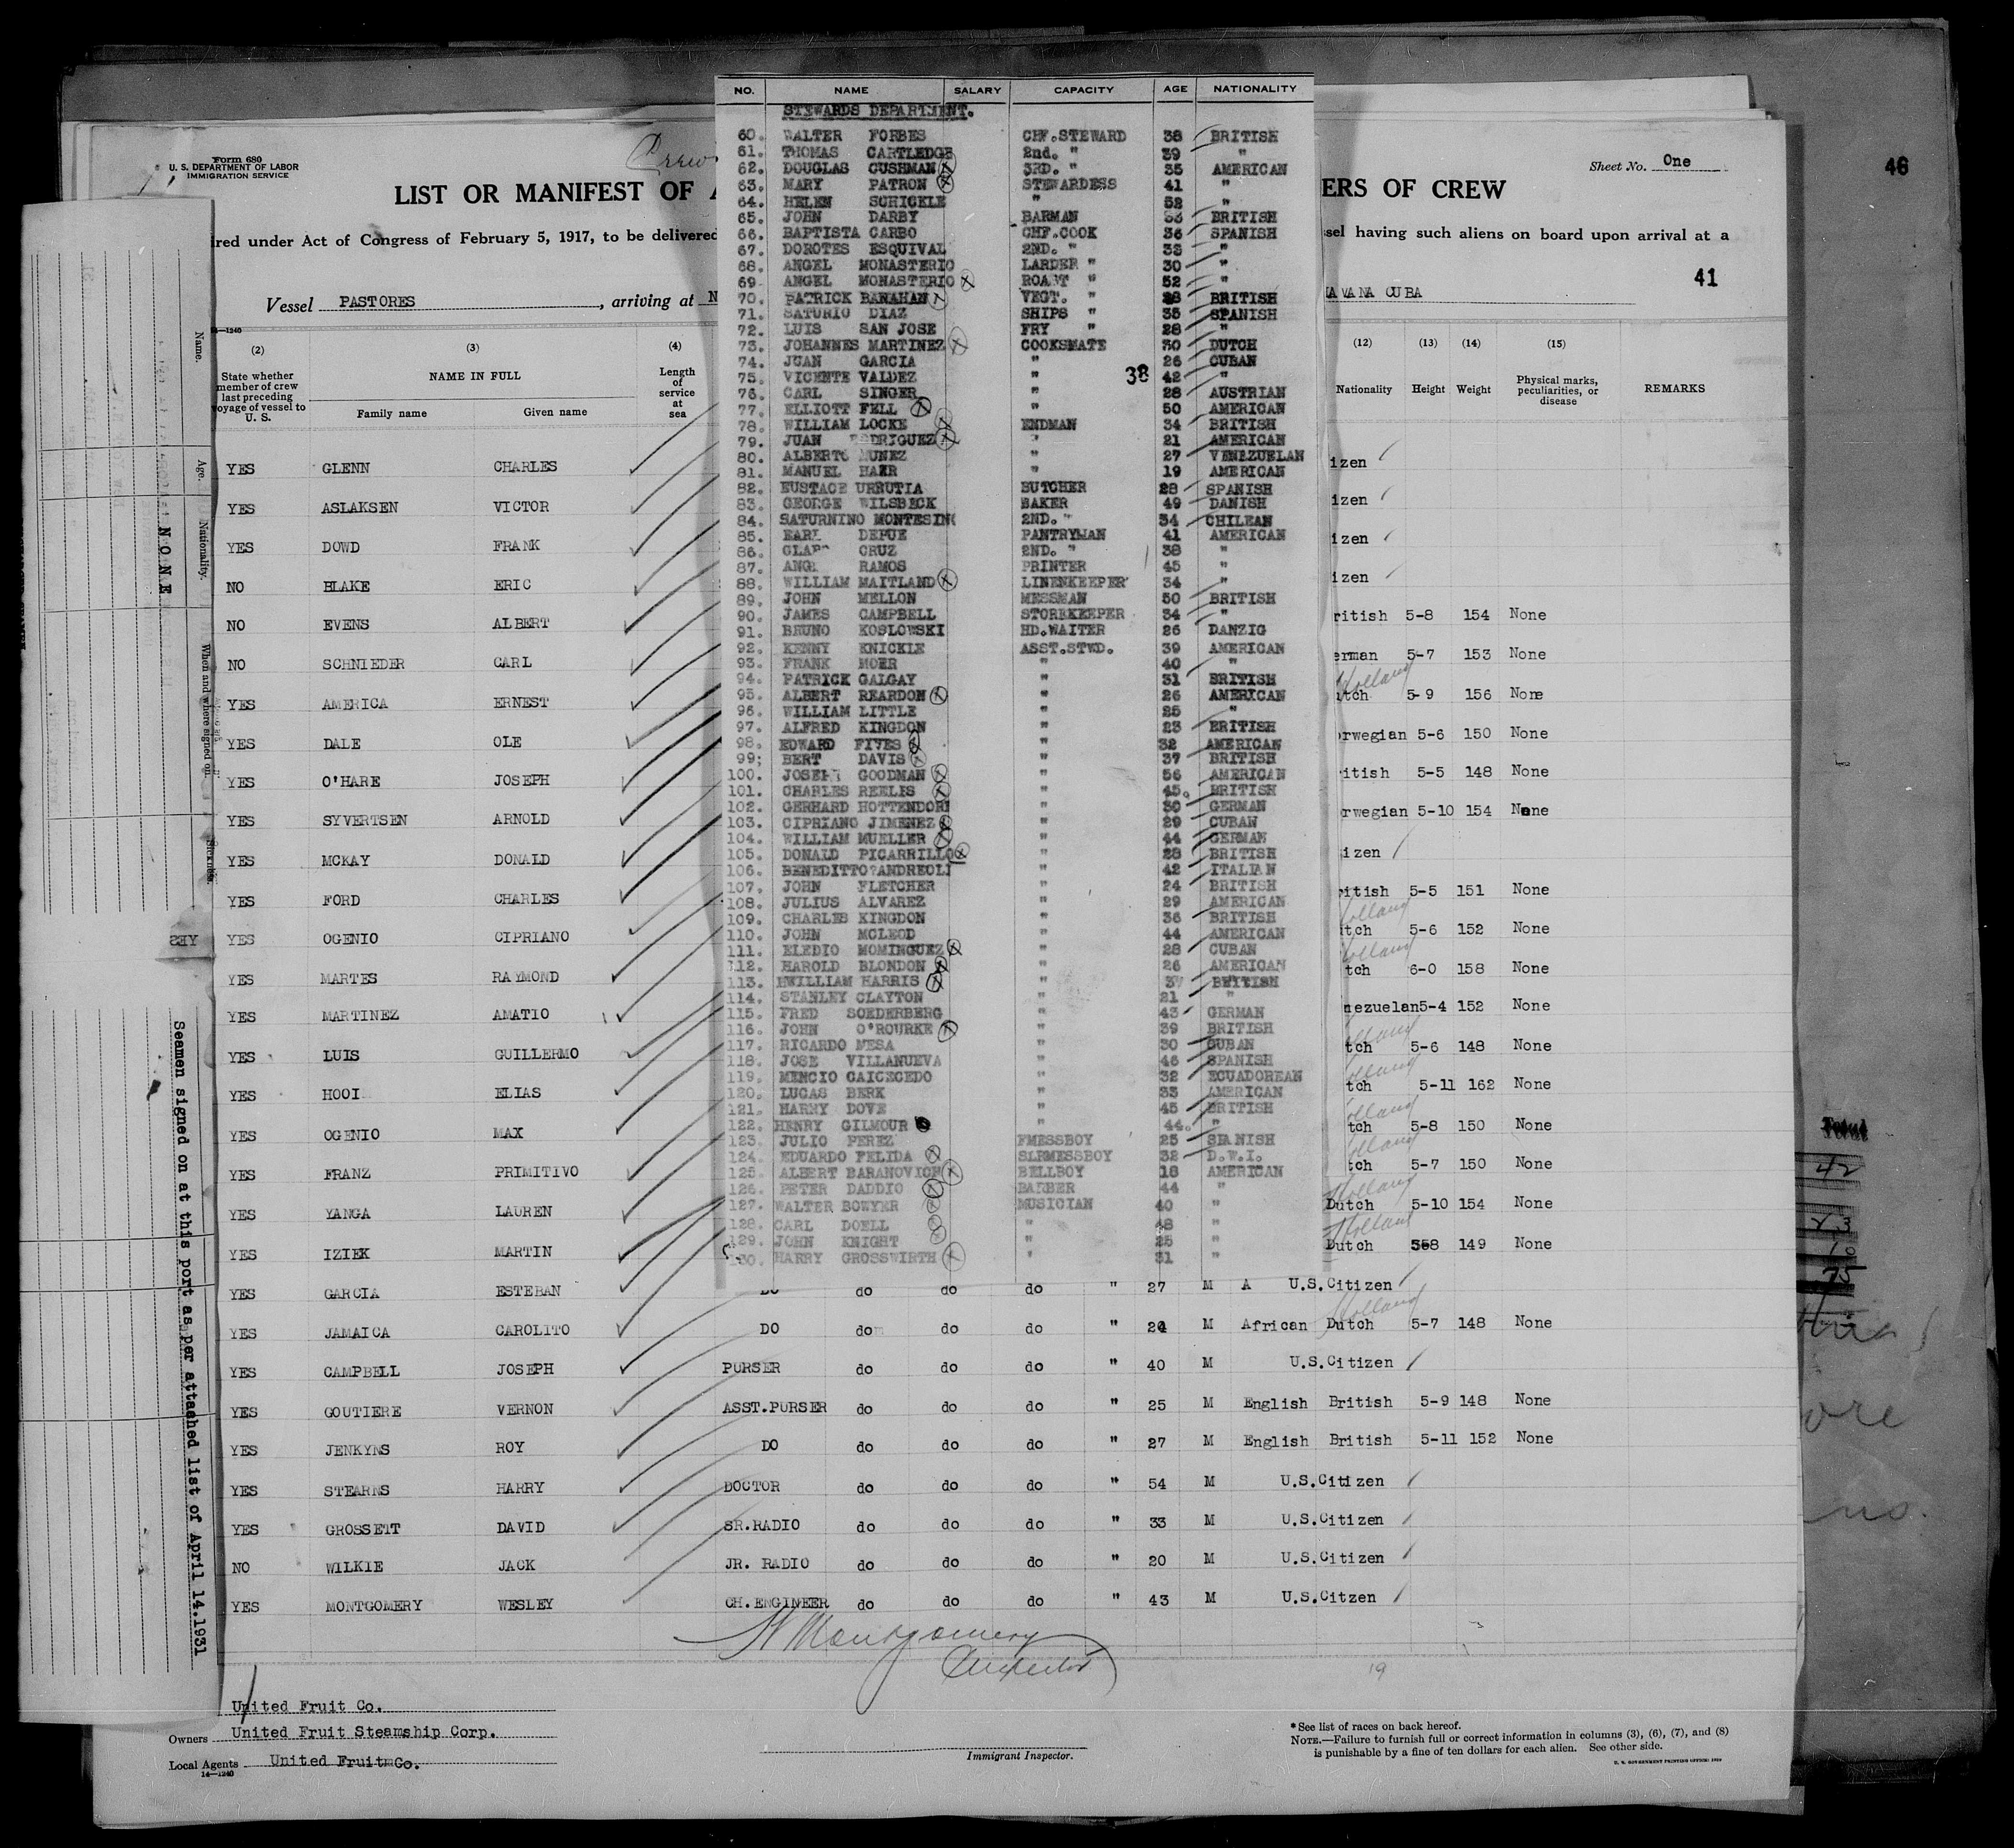 Form 680
U. S. DEPARTMENT OF LABOR
IMMIGRATION SERVICE
Crew
Sheet No. One
46
LIST OR MANIFEST OF
ERS OF CREW
ired under Act of Congress of February 5, 1917, to be delivered
sel having such aliens on board upon arrival at a
41
Vessel PASTORES , arriving at N
AVANA CUBA
—1240
(2) (3) (4)
(12) (13) (14) (15)
State whether member of crew last preceding voyage of vessel to U. S.
NAME IN FULL
Family name Given name
Length of service at sea
Nationality Height Weight Physical marks, peculiarities, or disease REMARKS
NO. NAME SALARY CAPACITY AGE NATIONALITY
STEWARDS DEPARTMENT.
60. WALTER FORBES CHF.STEWARD 38 BRITISH
61. THOMAS CARTLEDGE 2nd. " 39 "
62. DOUGLAS CUSHMAN 3RD. " 35 AMERICAN
63. MARY PATRON STEWARDESS 41 "
64. HELEN SCHICKLE " 52 "
65. JOHN DARBY BARMAN BRITISH
66. BAPTISTA CARBO CHF.COOK 36 SPANISH
67. DOROTES ESQUIVAL 2ND. " "
68. ANGEL MONASTERIO LARDER " 30 "
69 ANGEL MONASTERIO ROAST " 52 "
70. PATRICK BANAHAN VEGT. " BRITISH
71. SATURIO DIAZ SHIPS " 35 SPANISH
72. LUIS SAN JOSE FRY " 28 "
73. JOHANNES MARTINEZ COOKSMATE 30 DUTCH
74. JUAN GARCIA " 26 CUBAN
75. VICENTE VALDEZ " 38 42 "
76. CARL SINGER " 28 AUSTRIAN
77. ELLIOTT FELL " 50 AMERICAN
78. WILLIAM LOCKE ENDMAN 34 BRITISH
79. JUAN RODRIGUEZ " 21 AMERICAN
80. ALBERTO MUNEZ " 27 VENEZUELAN
81. MANUEL HAER " 19 AMERICAN
82. EUSTACE URRUTIA BUTCHER 28 SPANISH
83. GEORGE WILSBECK BAKER 49 DANISH
84. SATURNINO MONTESIN 2ND. " 34 CHILEAN
85. EARL DEPUE PANTRYMAN 41 AMERICAN
86. CRUZ 2ND. " 38 "
87. ANG RAMOS PRINTER 45 "
88. WILLIAM MAITLAND LINENKEEPER 34 "
89. JOHN MELLON MESSMAN 50 BRITISH
90. JAMES CAMPBELL STOREKEEPER 34 "
91. BRUNO KOSLOWSKI HD.WAITER 26 DANZIG
92. KENNY KNICKLE ASST.STWD. 39 AMERICAN
93. FRANK MOER " 40 "
94. PATRICK GALGAY " 31 BRITISH
95. ALBERT REARDON " 26 AMERICAN
96. WILLIAM LITTLE " 25 "
97. ALFRED KINGDON " 23 BRITISH
98. EDWARD FIVES " 32 AMERICAN
99; BERT DAVIS " 37 BRITISH
100. JOSEPH GOODMAN " 56 AMERICAN
101. CHARLES REELIS " 45. BRITISH
102. GERHARD HOTTENDORF " 30 GERMAN
103. CIPRIANO JIMENEZ " 29 CUBAN
104. WILLIAM MUELLER " 44 GERMAN
105. DONALD PICARRILLO " 28 BRITISH
106. BENEDITTO?ANDREOLI " 42 ITALIAN
107. JOHN FLETCHER " 24 BRITISH
108. JULIUS ALVAREZ " 29 AMERICAN
109. CHARLES KINGDON " 36 BRITISH
110. JOHN MCLEOD " 44 AMERICAN
111. ELEDIO MOMINGUEZ " 28 CUBAN
112. HAROLD BLONDON " 26 AMERICAN
113. HWILLIAM HARRIS " BRITISH
114. STANLEY CLAYTON " 21 "
115. FRED SOEDERBERG " 43 GERMAN
116. JOHN O'ROURKE " 39 BRITISH
117. RICARDO MESA " 30 CUBAN
118. JOSE VILLANUEVA " 46 SPANISH
119. MENCIO CAICECEDO " 32 ECUADOREAN
120. LUCAS BERK " 33 AMERICAN
121. HARRY DOVE " 45 BRITISH
122. HENRY GILMOUR " 44. "
123. JULIO PEREZ FMESSBOY 25 SPANISH
124. EDUARDO FELIDA SLRMESSBOY 32 D.W.I.
125. ALBERT BARANOVICH BELLBOY 18 AMERICAN
126. PETER DADDIO BARBER 44 "
127. WALTER BOWYER MUSICIAN 40 "
128. CARL DOELL " 48 "
129. JOHN KNIGHT " 25 "
130. HARRY GROSSWIRTH " 31 "
YES GLENN CHARLES izen
YES ASLAKSEN VICTOR izen
YES DOWD FRANK izen
NO BLAKE ERIC izen
NO EVENS ALBERT ritish 5-8 154 None
NO SCHNIEDER CARL erman 5-7 153 None
YES AMERICA ERNEST utch Holland 5-9 156 None
YES DALE OLE orwegian 5-6 150 None
YES O'HARE JOSEPH itish 5-5 148 None
YES SYVERTSEN ARNOLD orwegian 5-10 154 None
YES MCKAY DONALD izen
YES FORD CHARLES ritish 5-5 151 None
YES OGENIO CIPRIANO tch olland 5-6 152 None
YES MARTES RAYMOND tch olland 6-0 158 None
YES MARTINEZ AMATIO nezuelan 5-4 152 None
YES LUIS GUILLERMO tch olland 5-6 148 None
YES HOOI ELIAS tch olland 5-11 162 None
YES OGENIO MAX tch olland 5-8 150 None
YES FRANZ PRIMITIVO tch olland 5-7 150 None
YES YANGA LAUREN Dutch Holland 5-10 154 None
YES IZIEK MARTIN Dutch Holland 5-8 149 None
YES GARCIA ESTEBAN DO do do do " 27 M A U.S.Citizen
YES JAMAICA CAROLITO DO do do do " 24 M African Dutch Holland 5-7 148 None
YES CAMPBELL JOSEPH PURSER do do do " 40 M U.S.Citizen
YES GOUTIERE VERNON ASST.PURSER do do do " 25 M English British 5-9 148 None
YES JENKYNS ROY DO do do do " 27 M English British 5-11 152 None
YES STEARNS HARRY DOCTOR do do do " 54 M U.S.Citizen
YES GROSSETT DAVID SR.RADIO do do do " 33 M U.S.Citizen
NO WILKIE JACK JR. RADIO do do do " 20 M U.S.Citizen
YES MONTGOMERY WESLEY CH.ENGINEER do do do " 43 M U.S.Citzen
Montgomery
Inspector
19
United Fruit Co.
Owners United Fruit Steamship Corp.
Local Agents United Fruit Co.
14—1240
Immigrant Inspector.
*See list of races on back hereof.
NOTE.—Failure to furnish full or correct information in columns (3), (6), (7), and (8)
is punishable by a fine of ten dollars for each alien. See other side.
U. S. GOVERNMENT PRINTING OFFICE: 1929
Name.
Age.
Nationality.
NONE
When and where signed on.
YES
Seamen signed on at this port as per attached list of April 14.1931
Total
42
23
10
75
ore
no.